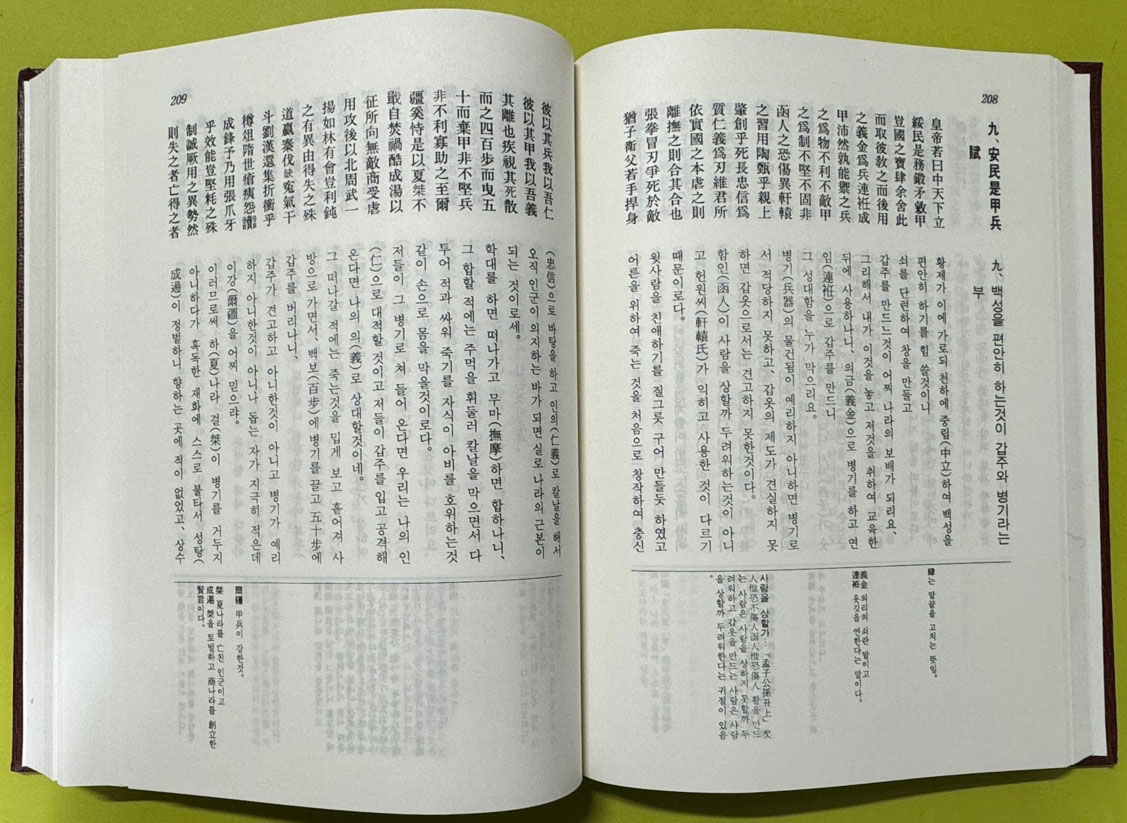 208
九、安民是甲兵
賦
皇帝若曰中天下立
綏民是務鍛矛敹甲
豈國之寶肆余舍此
而取彼敎之而後用
之義金爲兵連袵成
甲沛然孰能禦之兵
之爲物不利不敵甲
之爲制不堅不固非
函人之恐傷異軒轅
之習用陶甄乎親上
肇創乎死長忠信爲
質仁義爲刃維君所
依實國之本虐之則
離撫之則合其合也
張拳冒刃爭死於敵
猶子衛父若手捍身
九、백성을 편안히 하는것이 갑주와 병기라는
부
황제가 이에 가로되 천하에 중립(中立)하여 백성을
편안히 하기를 힘 쓸것이니
쇠를 단련하여 창을 만들고
갑주를 만드느것이 어찌 나라의 보배가 되리요
그리해서 내가 이것을 놓고 저것을 취하여 교육한
뒤에 사용하나니、의금(義金)으로 병기를 하고 연
임(連袵)으로 갑주를 만드니
그 성대함을 누가 막으리요。
병기(兵器)의 물건됨이 예리하지 아니하면 병기로
서 적당하지 못하고、갑옷의 제도가 견실하지 못
하면 갑옷으로서는 견고하지 못한것이다。
함인(函人)이 사람을 상할까 두려워하는것이 아니
고 헌원씨(軒轅氏)가 익히고 사용한 것이 다르기
때문이로다。
윗사람을 친애하기를 질그릇 구어 만들듯 하였고
어른을 위하여 죽는 것을 처음으로 창작하여 충신
肆는 말끝을 고치는 뜻임。
義金 의리의 쇠란 말이고
連袵 옷깃을 연한다는 말이다。
사람을 상할가 :「孟子公孫丑上」矢
人惟恐不傷人函人惟恐傷人 활을 만드
는 사람은 사람을 상하지 못할까 두
려워하고 갑옷을 만드는 사람은 사람
을 상할까 두려워한다는 귀절이 있음
。
209
彼以其兵我以吾仁
彼以其甲我以吾義
其離也疾視其死散
而之四百步而曳五
十而棄甲非不堅兵
非不利寡助之至爾
疆奚恃是以夏桀不
戢自焚禍酷成湯以
征所向無敵商受虐
用攻後以北周武一
揚如林有會豈利鈍
之有異由得失之殊
道嬴秦伐缺寃氣干
斗劉漢還集折衝乎
樽俎隋世瘡痍怨讟
成鋒子乃用張爪牙
乎效能豈堅耗之殊
制誠厥用之異勢然
則失之者亡得之者
(忠信)으로 바탕을 하고 인의(仁義)로 칼날을 해서
오직 인군이 의지하는 바가 되면 실로 나라의 근본이
되는 것이로세。
학대를 하면 떠나가고 무마(撫摩)하면 합하나니、
그 합할 적에는 주먹을 휘둘러 칼날을 막으면서 다
투어 적과 싸워 죽기를 자식이 아비를 호위하는것
같이 손으로 몸을 막을것이로다。
저들이 그 병기로 쳐 들어 온다면 우리는 나의 인
(仁)으로 대적할 것이고 저들이 갑주를 입고 공격해
온다면 나의 의(義)로 상대할것이네。
그 떠나갈 적에는 죽는것을 밉게 보고 흩어져 사
방으로 가면서、백보(百步)에 병기를 끌고 五十步에
갑주를 버리나니、
갑주가 견고하고 아니한것이 아니고 병기가 예리
하지 아니한것이 아니나 돕는 자가 지극히 적은데
이강(爾疆)을 어찌 믿으랴。
이러므로써 하(夏)나라 걸(桀)이 병기를 거두지
아니하다가 혹독한 재화에 스스로 불타서 성탕(
成湯)이 정벌하니 향하는 곳에 적이 없었고、상수
爾疆 甲兵이 강한것。
桀 夏나라를 亡친 인군이고
成湯 桀을 토벌하고 商나라를 創立한
賢君이다。